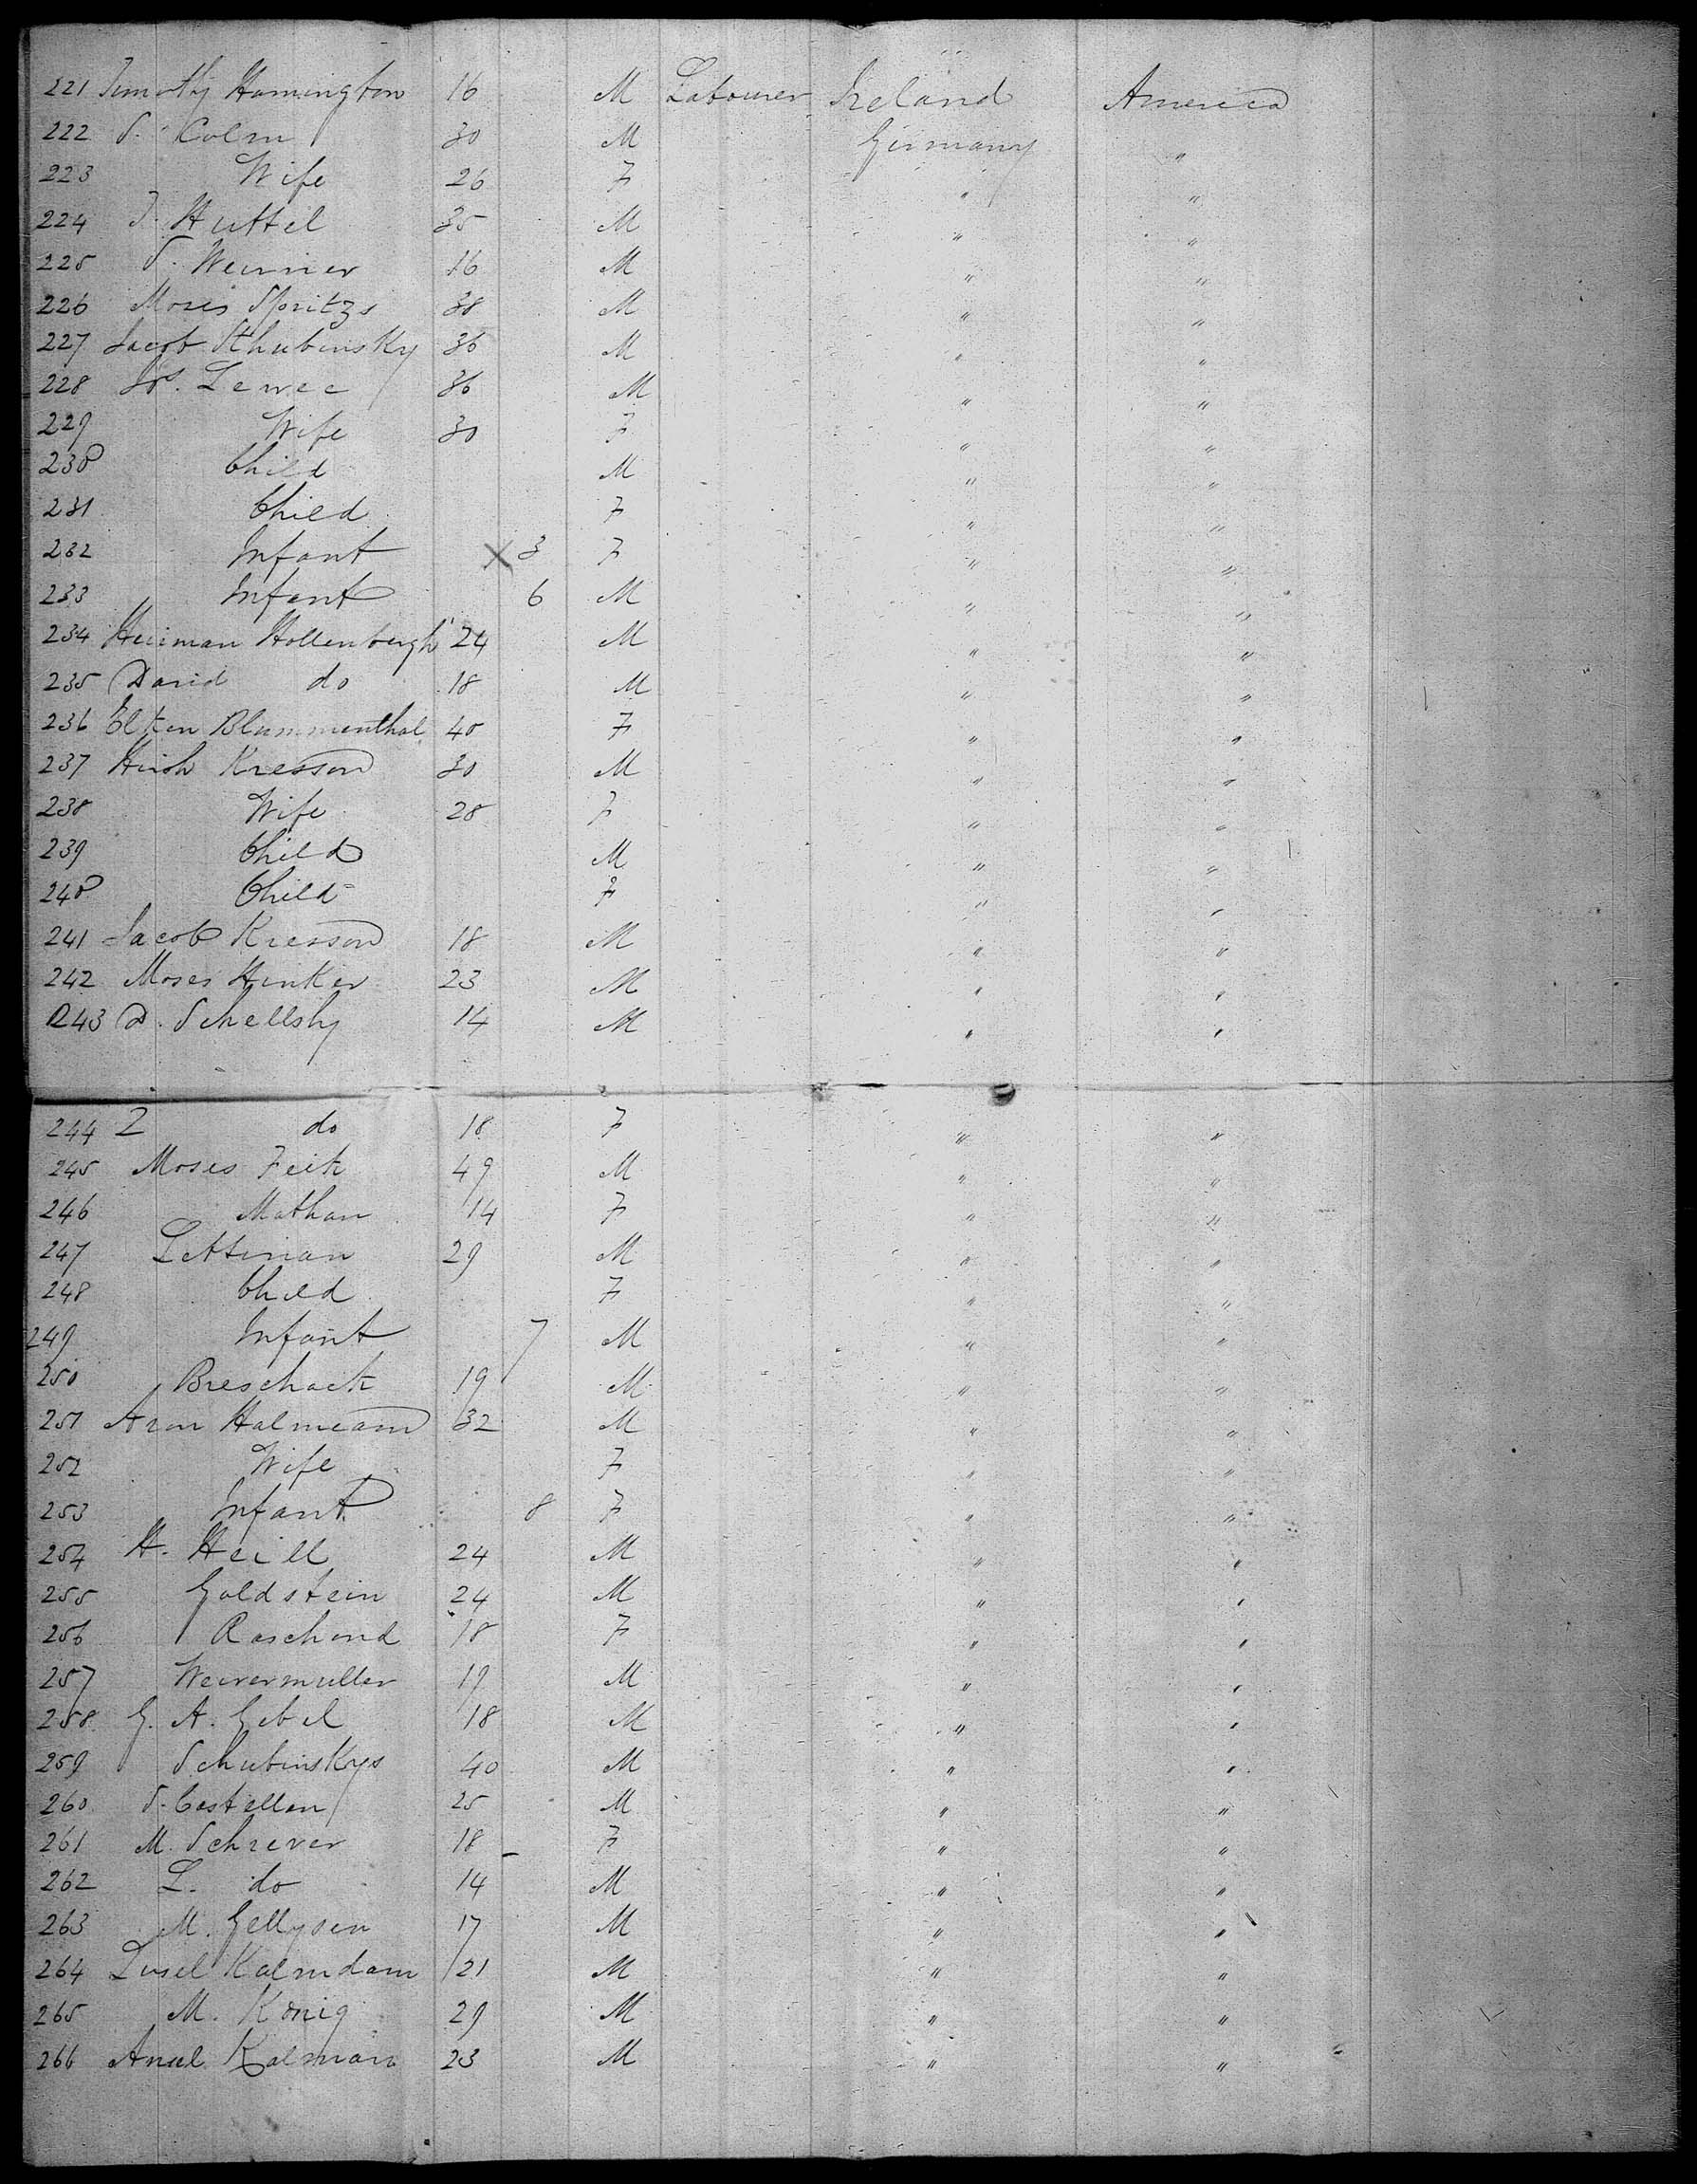 221 Timothy Hamington 16 M Labourer Ireland America
222 S. Colm 30 M Germany "
223 Wife 26 F " "
224 J. Huttel 35 M " "
225 S. Weiner 16 M " "
226 Moses Spritzs 38 M " "
227 Jacob Schubinsky 36 M " "
228 Lewee 36 M " "
229 Wife 30 F " "
230 Child M " "
231 Child F " "
232 Infant X 3 F " "
233 Infant 6 M " "
234 Herman Hollenbergh 24 M " "
235 David do 18 M " "
236 Elken Blummenthal 40 F " "
237 Hirsh Kresson 30 M " "
238 Wife 28 F " "
239 Child M " "
240 Child F " "
241 Jacob Kresson 18 M " "
242 Moses Hinker 23 M " "
243 D. Schellshy 14 M " "
244 Z do 18 F " "
245 Moses Feik 49 M " "
246 Mathan 14 F " "
247 Letterian 29 M " "
248 Child F " "
249 Infant 7 M " "
250 Breschack 19 M " "
251 Aron Halmeam 32 M " "
252 Wife F " "
253 Infant 8 F " "
254 H. Heill 24 M " "
255 Goldstein 24 M " "
256 Raschond 18 F " "
257 Weivermuller 19 M " "
258 G. A. Gebel 18 M " "
259 Schubinskys 40 M " "
260 S. Castellan 25 M " "
261 M. Schrever 18 F " "
262 L. do 14 M " "
263 M. Gellysen 17 M " "
264 Lusel Kalmdam 21 M " "
265 M. König 29 M " "
266 Ansel Kalman 23 M " "